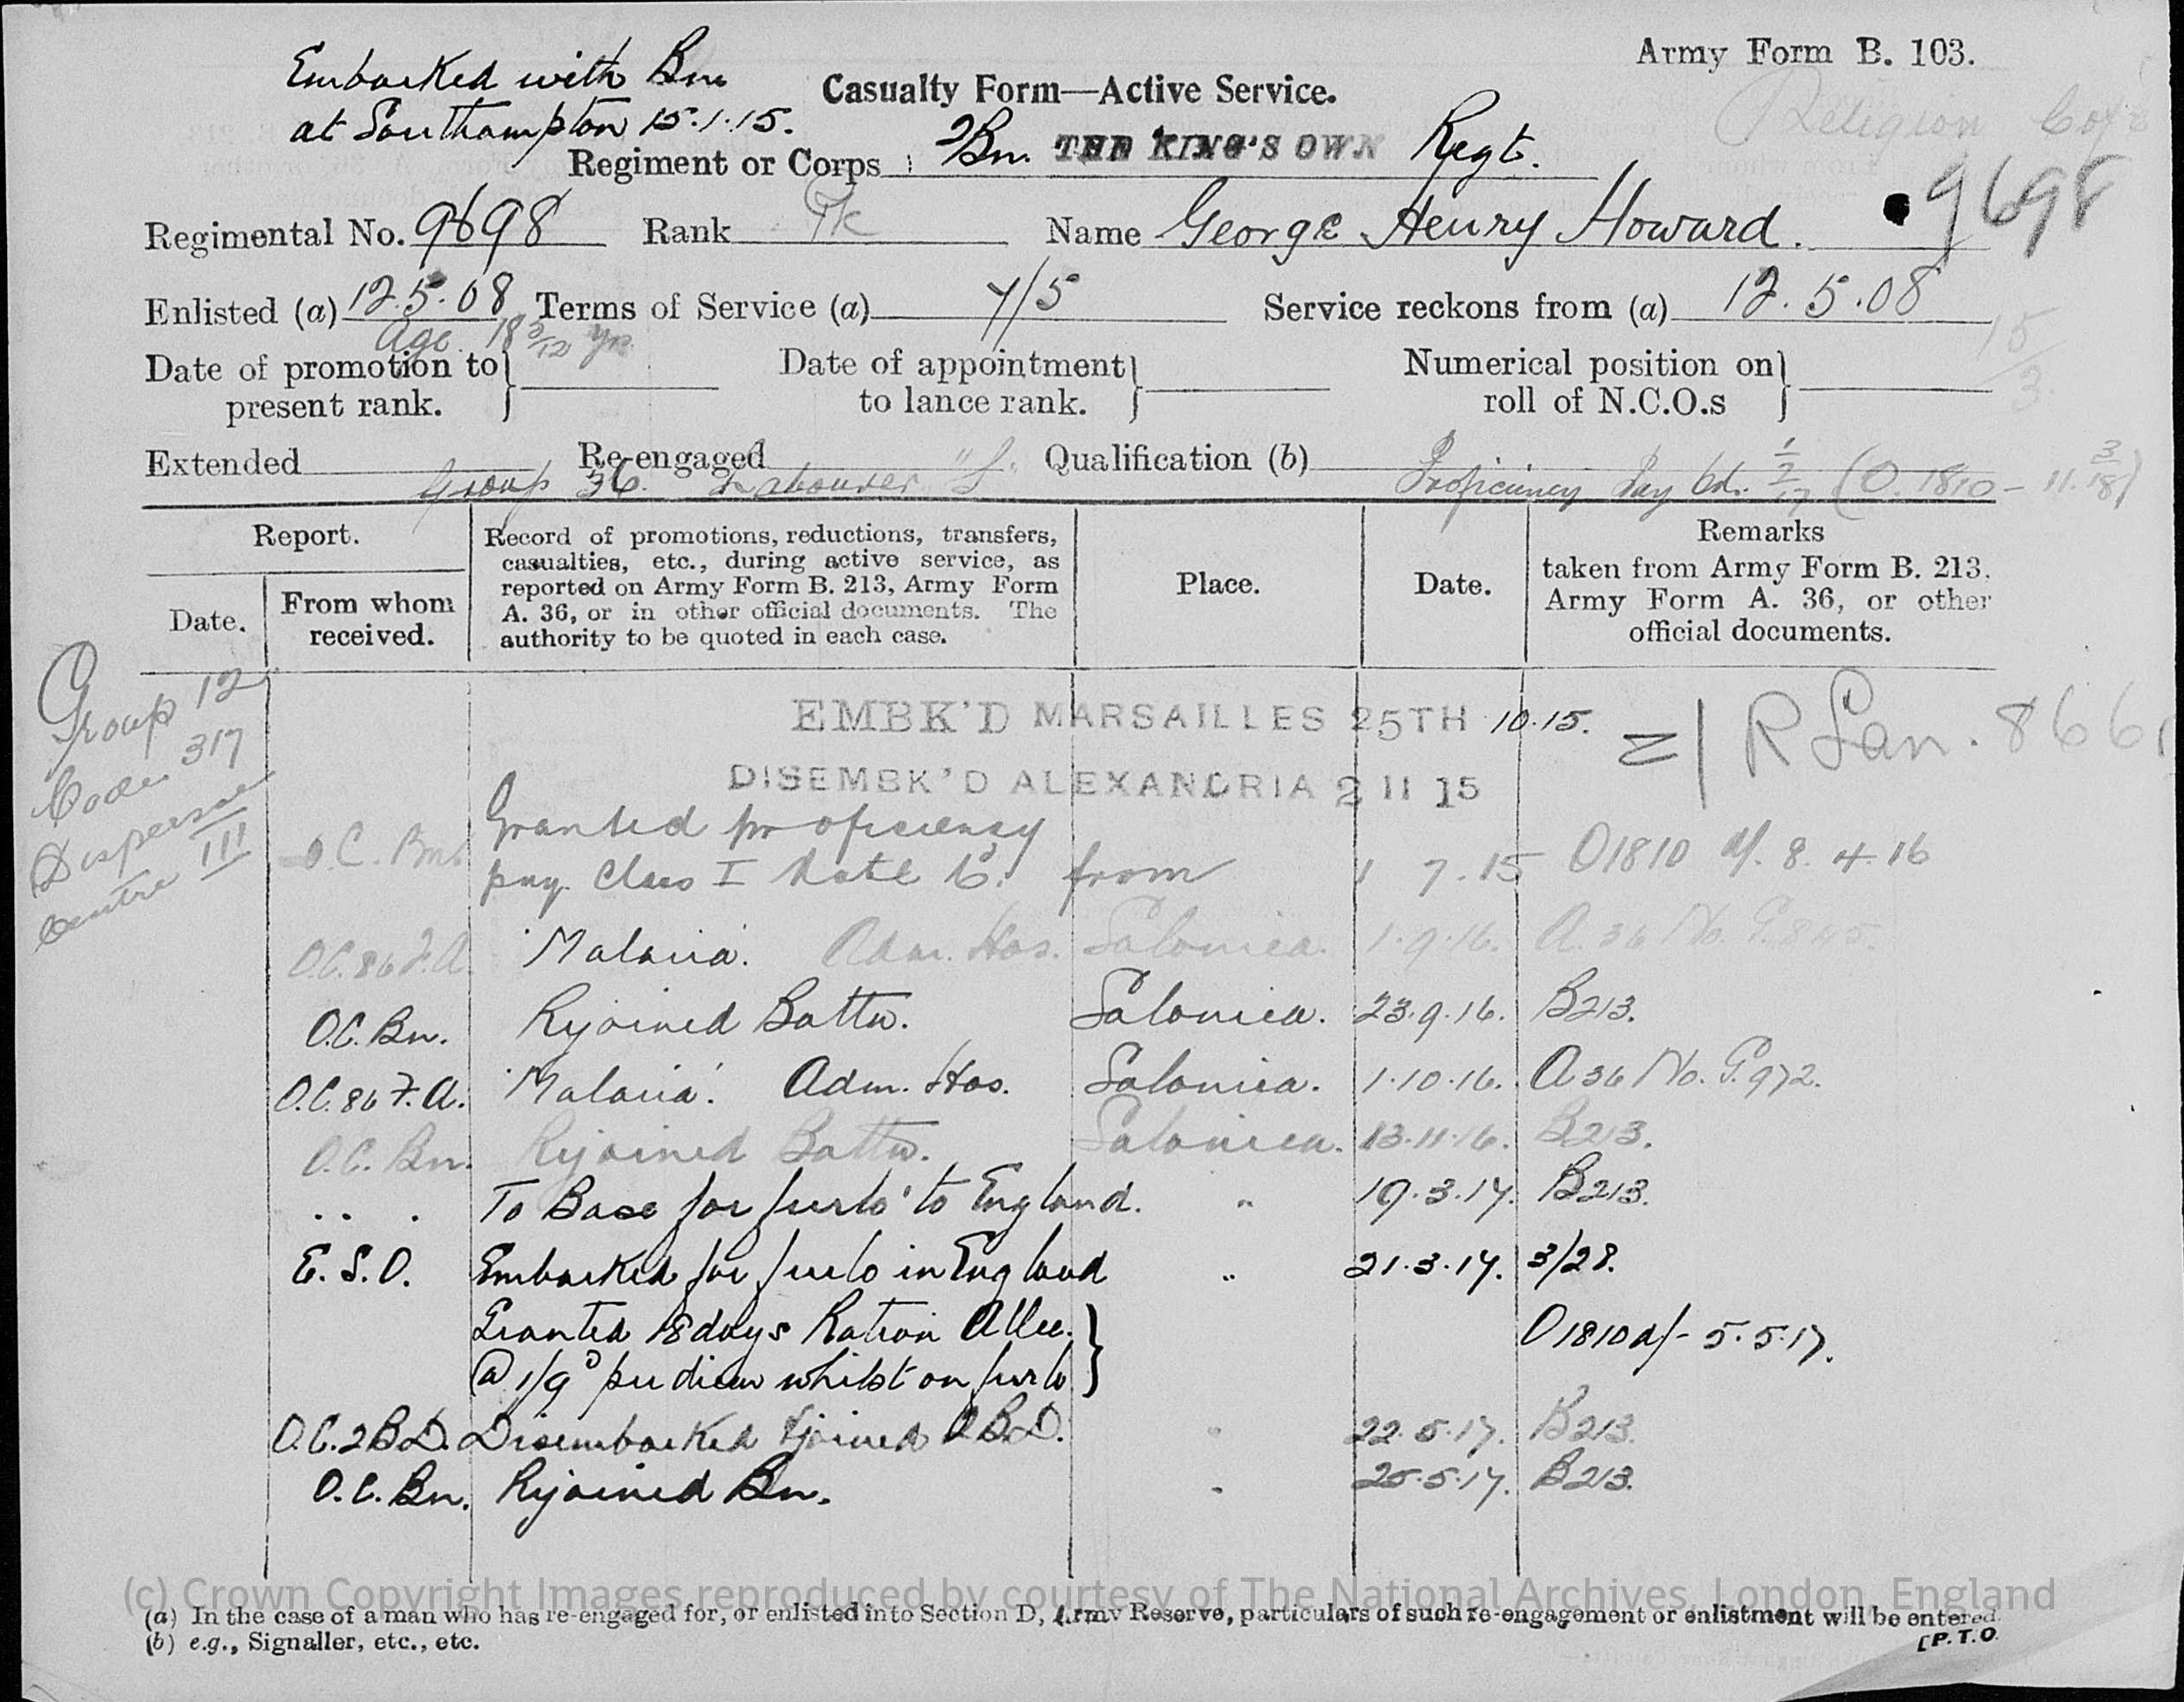 Army Form B. 103.
Embarked with Bn
at Southampton 15.1.15.
Casualty Form—Active Service.
Religion
Regiment or Corps 2Bn. THE KING'S OWN Regt.
9698
Regimental No. 9698 Rank Pte Name George Henry Howard.
Enlisted (a) 12.5.08 Terms of Service (a) 7/5 Service reckons from (a) 12.5.08
Age 18 3/12 yrs
15/3
Date of promotion to present rank. Date of appointment to lance rank. Numerical position on roll of N.C.O.s
Extended Re-engaged Qualification (b)
Group 36. Labourer "L" Proficiency Pay (O. 1810 - 11.3/18)
Report.
Date.
From whom received.
Record of promotions, reductions, transfers,
casualties, etc., during active service, as
reported on Army Form B. 213, Army Form
A. 36, or in other official documents. The
authority to be quoted in each case.
Place.
Date.
Remarks
taken from Army Form B. 213,
Army Form A. 36, or other
official documents.
Group 12
Code 317
Dispersal
Centre III
EMBK'D MARSAILLES 25TH 10.15.
R Lan. 866
DISEMBK'D ALEXANDRIA 2 11 15
Granted proficiency
O.C. Bn. pay Class I Rate 6d from 1 7.15 O1810 d/. 8.4.16
O.C. 86 F.A. 'Malaria'. Adm. Hos. Salonica. 1.9.16. A.36 No. G.845.
O.C. Bn. Rejoined Battn. Salonica. 23.9.16. B213.
O.C. 86 F.A. 'Malaria'. Adm. Hos. Salonica. 1.10.16. A36 No. G.972.
O.C. Bn. Rejoined Battn. Salonica. 13.11.16. B213.
.. . To Base for furlo' to England. " 19.3.17. B213.
E.S.O. Embarked for furlo in England " 21.3.17. 3/28.
Granted 18 days Ration Allce.
@ 1/9d per diem whilst on furlo } O1810 d/- 5.5.17.
O.C. 2 B.D. Disembarked & joined 2 B.D. " 22.5.17. B213.
O.C. Bn. Rejoined Bn. " 25.5.17. B213.
(c) Crown Copyright Images reproduced by courtesy of The National Archives, London, England
(a) In the case of a man who has re-engaged for, or enlisted into Section D, Army Reserve, particulars of such re-engagement or enlistment will be entered.
(b) e.g., Signaller, etc., etc.
[P.T.O.